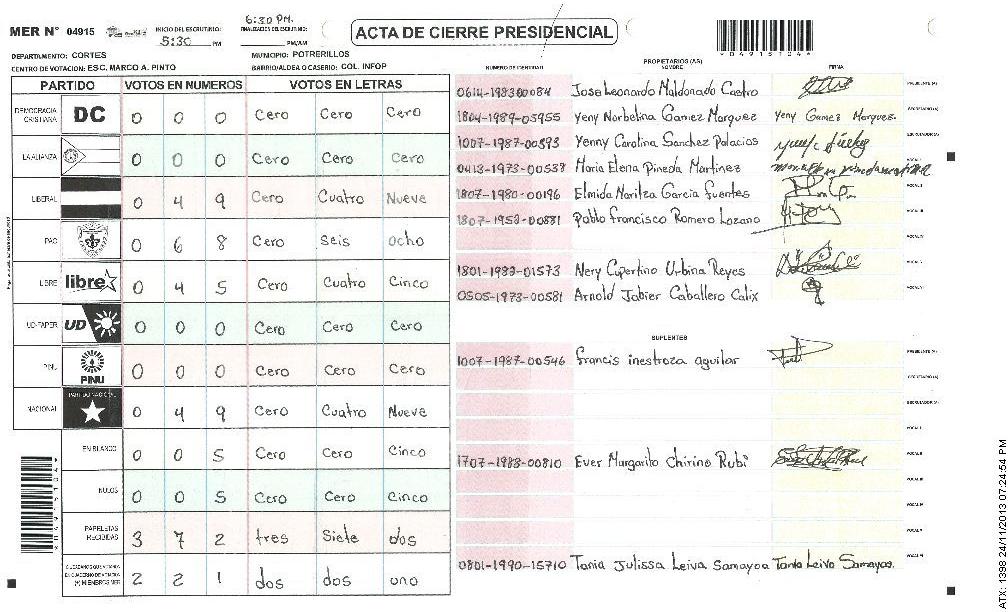 MER N° 04915 INICIO DEL ESCRUTINIO: 5:30 PM FINALIZACION DEL ESCRUTINIO: 6:30 PM. PM/AM
ACTA DE CIERRE PRESIDENCIAL
*04915104*
DEPARTAMENTO: CORTES MUNICIPIO: POTRERILLOS
CENTRO DE VOTACION: ESC. MARCO A. PINTO BARRIO/ALDEA O CASERIO: COL. INFOP
PARTIDO VOTOS EN NUMEROS VOTOS EN LETRAS
DEMOCRACIA CRISTIANA DC 0 0 0 Cero Cero Cero
LA ALIANZA 0 0 0 Cero Cero Cero
LIBERAL 0 4 9 Cero Cuatro Nueve
PAC 0 6 8 Cero Seis ocho
LIBRE libre 0 4 5 Cero Cuatro Cinco
UD-FAPER UD 0 0 0 Cero Cero Cero
PINU PINU 0 0 0 Cero Cero Cero
NACIONAL PARTIDO NACIONAL 0 4 9 Cero Cuatro Nueve
EN BLANCO 0 0 5 Cero Cero Cinco
NULOS 0 0 5 Cero Cero Cinco
PAPELETAS RECIBIDAS 3 7 2 tres Siete dos
CIUDADANOS QUE VOTARON EN CUADERNO DE VOTACION (+) MIEMBROS MER 2 2 1 dos dos uno
PROPIETARIOS (AS)
NUMERO DE IDENTIDAD NOMBRE FIRMA
0614-1983-00084 Jose Leonardo Maldonado Castro PRESIDENTE (A)
1804-1989-05955 Yeny Norbelina Gamez Marquez Yeny Gamez Marquez. SECRETARIO (A)
1007-1987-00593 Yenny Carolina Sanchez Palacios ESCRUTADOR (A)
0413-1973-00538 Maria Elena Pineda Martinez VOCAL I
1807-1980-00196 Elmida Maritza Garcia fuentes VOCAL II
1807-1953-00881 Pablo Francisco Romero Lozano VOCAL III
VOCAL IV
1801-1983-01573 Nery Cupertino Urbina Reyes VOCAL V
0505-1973-00581 Arnold Jabier Caballero Calix VOCAL VI
SUPLENTES
1007-1987-00546 francis inestroza aguilar PRESIDENTE (A)
SECRETARIO (A)
ESCRUTADOR (A)
VOCAL I
1707-1983-00810 Ever Margarito Chirino Rubi VOCAL II
VOCAL III
VOCAL IV
VOCAL V
0801-1990-15710 Tania Julissa Leiva Samayoa Tania Leiva Samayoa. VOCAL VI
ATX: 1398 24/11/2013 07:24:54 PM